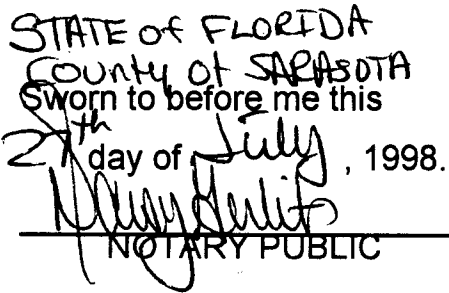 STATE of FLORIDA
County of SARASOTA
Sworn to before me this
27th day of July, 1998.
NOTARY PUBLIC